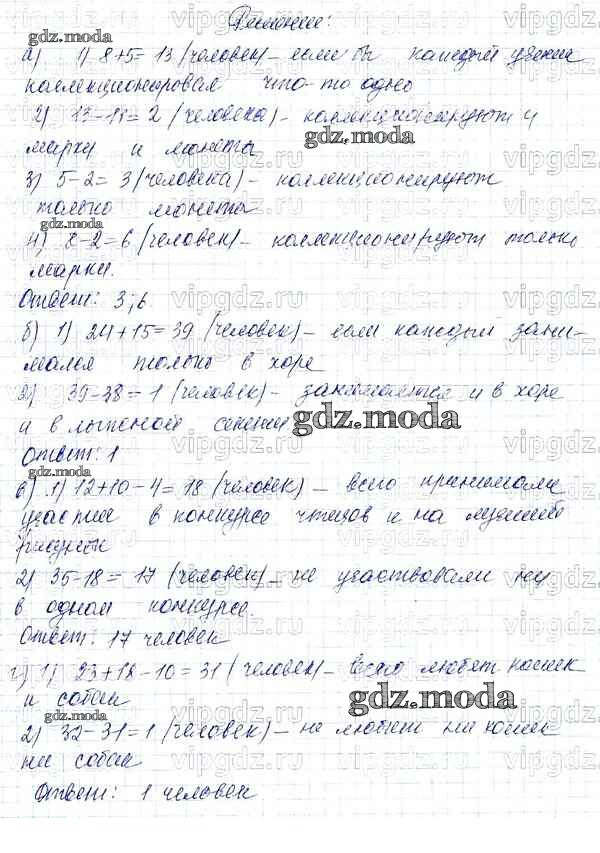 Решение:
а) 1) 8+5=13 (человек) – если бы каждый ученик
коллекционировал что-то одно
2) 13-11=2 (человека) – коллекционируют и
gdz.moda
марки и монеты
3) 5-2= 3 (человека) – коллекционируют
только монеты
gdz.moda
4) 8-2=6 (человек) – коллекционируют только
марки.
Ответ: 3; 6.
б) 1) 24+15=39 (человек) – если каждый зани-
мался только в хоре
gdz.moda
2) 39-38=1 (человек) – занимаются и в хоре
и в лыжной секции
gdz.moda
Ответ: 1
gdz.moda
в) 1) 12+10-4=18 (человек) – всего принимали
участие в конкурсе чтецов и на лучший
рисунок
gdz.moda
2) 35-18=17 (человек) – не участвовали ни
в одном конкурсе.
Ответ: 17 человек
gdz.moda
г) 1) 23+18-10=31 (человек) – всего любят кошек
и собак
gdz.moda
gdz.moda
2) 32-31=1 (человек) – не любит ни кошек
ни собак
Ответ: 1 человек
vipgdz.ru